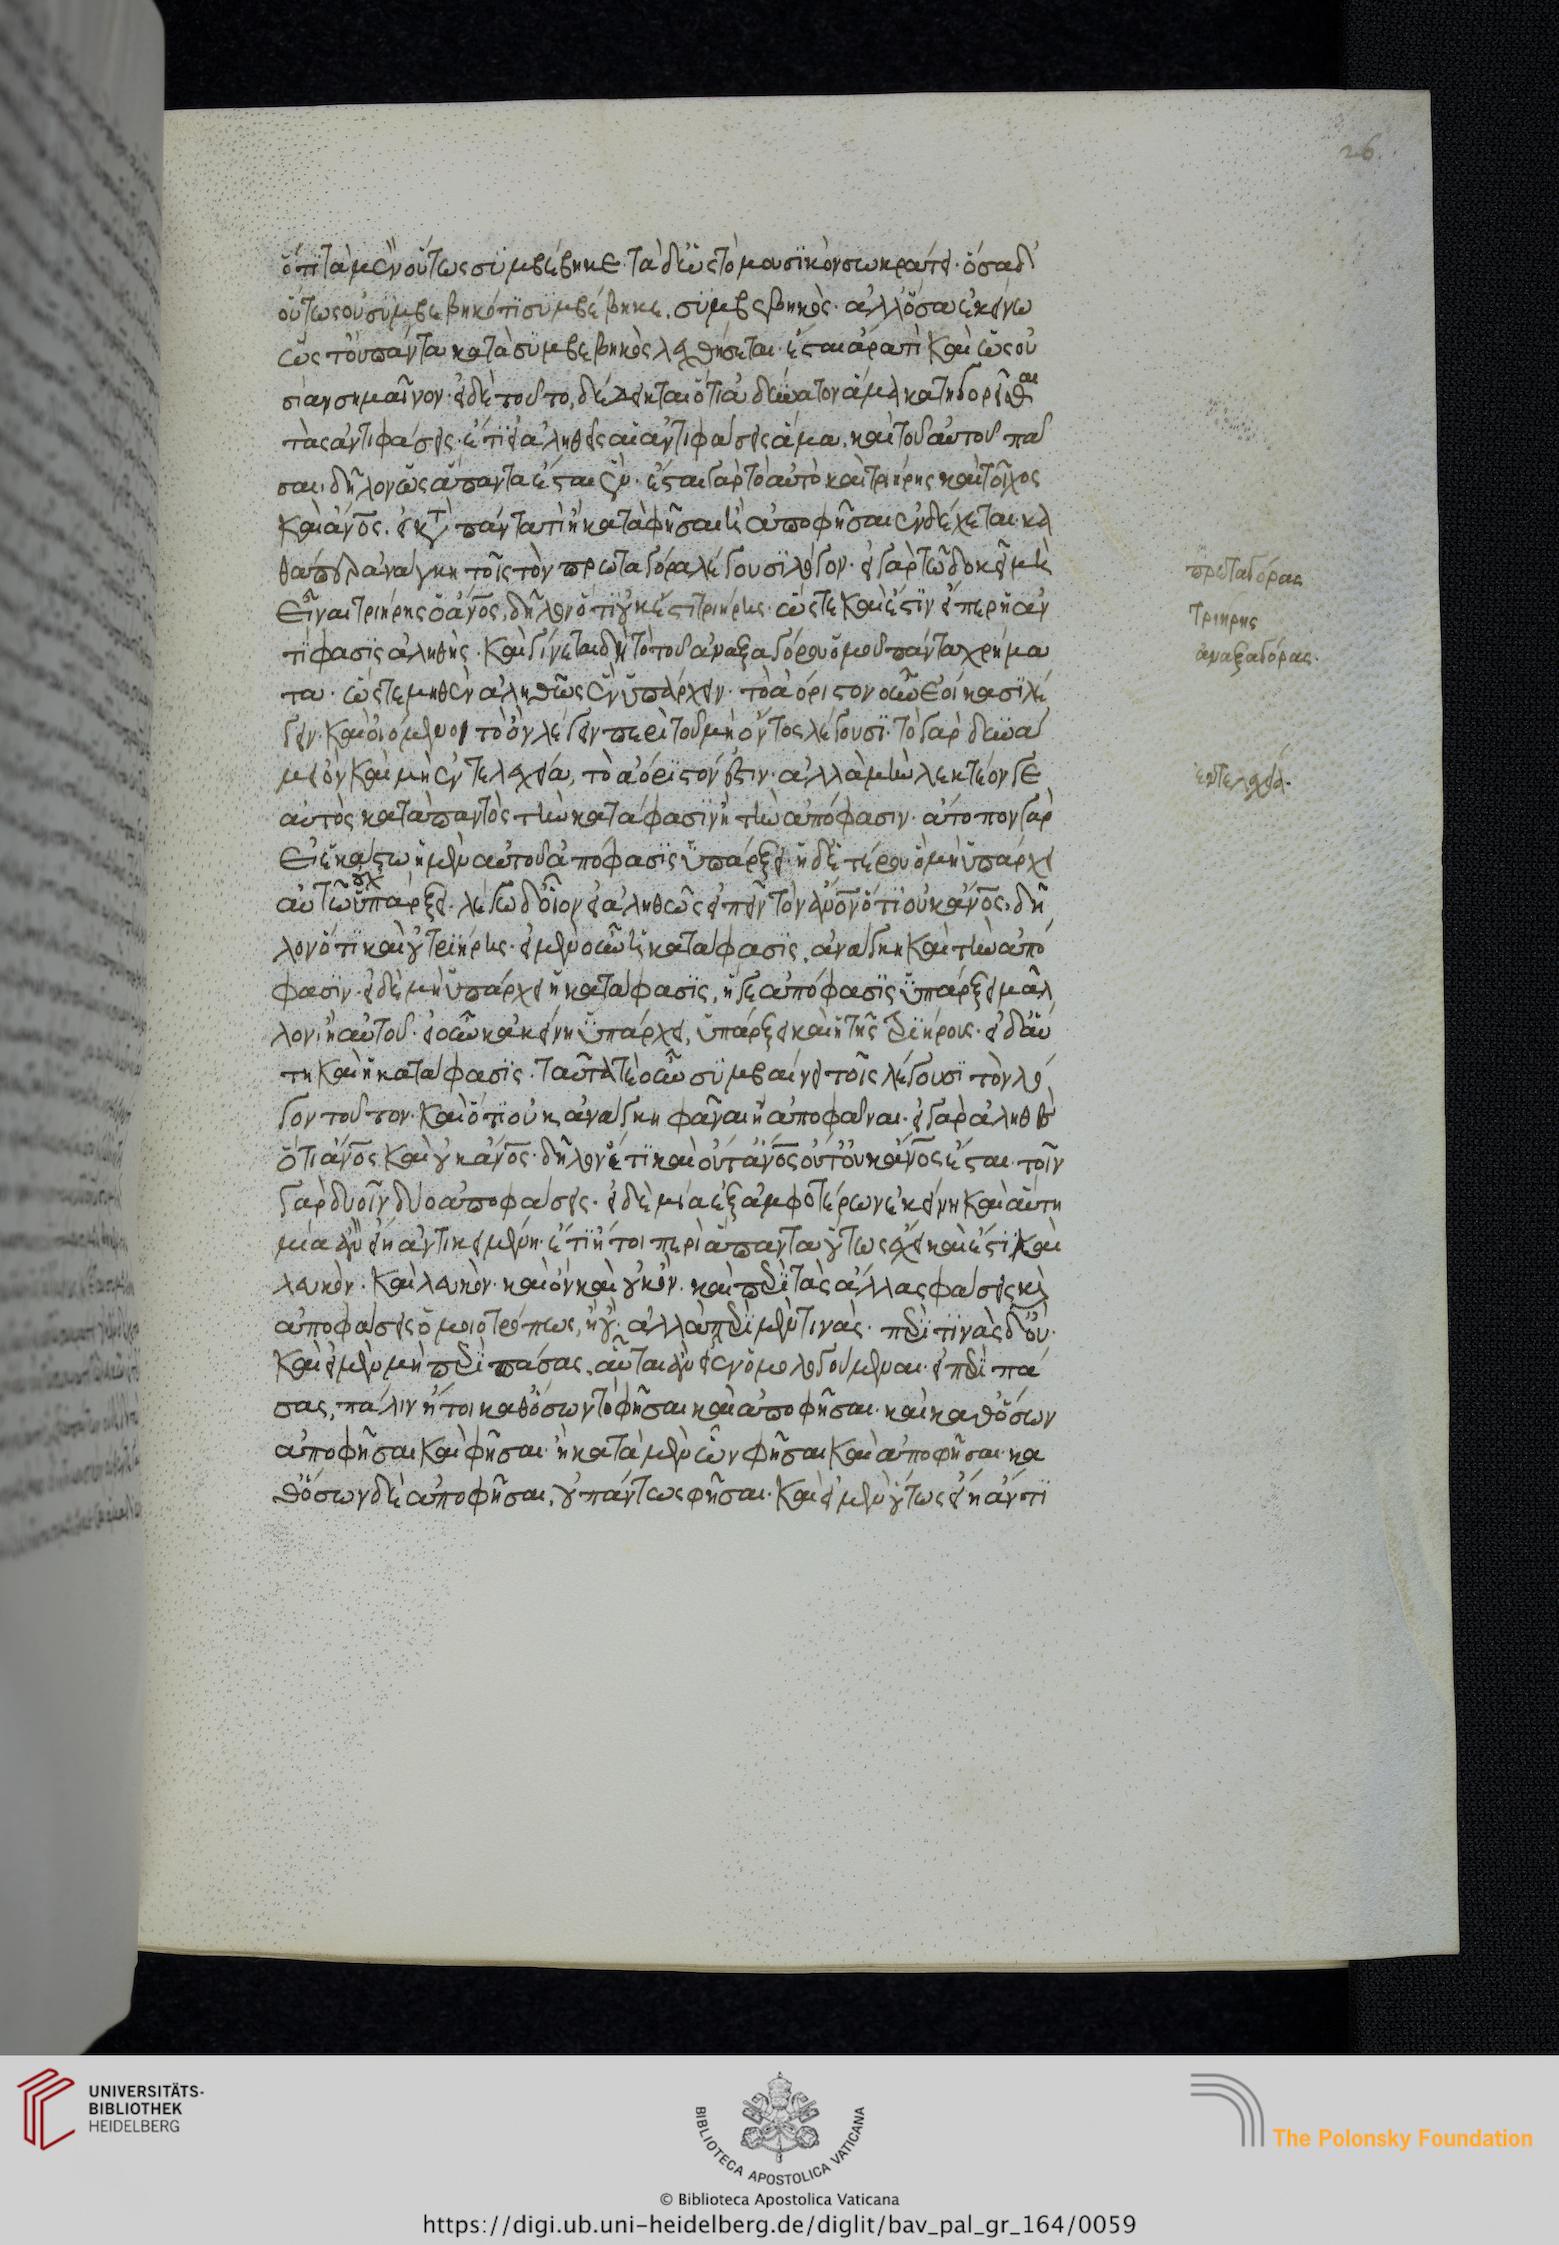 26
ὅτι τὰ μὲν οὕτως συμβέβηκε. τὰ δ' ὡς τὸ μουσικὸν σωκράτει. ὅσα δ'
οὕτως οὐ συμβεβηκότι συμβέβηκε, συμβεβηκός. ἀλλ' ὅσα ἐκείνω
ὥστ' οὐ πάντα κατὰ συμβεβηκὸς λεχθήσεται. ἔσται ἄρα τὶ καὶ ὡς οὐ
σίαν σημαῖνον. εἰ δὲ τοῦτο, δέδεικται ὅτι ἀδύνατον ἅμα κατηγορεῖσθαι
τὰς ἀντιφάσεις. ἔτι εἰ ἀληθεῖς αἱ ἀντιφάσεις ἅμα, κατὰ τοῦ αὐτοῦ πᾶ
σαι, δῆλον ὡς ἅπαντα ἔσται ἕν. ἔσται γὰρ τὸ αὐτὸ καὶ τριήρης καὶ τοῖχος
καὶ ἄνος. εἰ κτ παντὰ τὶ ἢ καταφῆσαι ἢ ἀποφῆσαι ἐνδέχεται. κα
θάπερ ἀνάγκη τοῖς τὸν πρωταγόρα λέγουσι λόγον. εἰ γὰρ τῶ δοκεῖ μὴ
εἶναι τριήρης ὁ ἄνος, δῆλον ὅτι οὐκ ἔστι τριήρης. ὥστε καὶ ἔστιν εἴπερ ἡ ἀν
τίφασις ἀληθής. καὶ γίνεται δὴ τὸ τοῦ ἀναξαγόρου ὁμοῦ πάντα χρήμα
τα. ὥστε μηθὲν ἀληθῶς ἓν ὑπάρχειν. τὸ ἀόριστον οὖν ἐοίκασι λέ
γειν. καὶ οἰόμενοι τὸ ὂν λέγειν περὶ τοῦ μὴ ὄντος λέγουσι. τὸ γὰρ δυνά
μει ὂν καὶ μὴ ἐντελεχεία, τὸ ἀόριστόν ἐστιν. ἀλλὰ μὴν λεκτέον γε
αὐτοῖς κατὰ παντὸς τὴν κατάφασιν ἢ τὴν ἀπόφασιν. ἄτοπον γὰρ
εἰ ἑκάστω ἡ μὲν αὐτοῦ ἀπόφασις ὑπάρξει. ἡ δ' ἑτέρου ὃ μὴ ὑπάρχει
αὐτῶ οὐχ ὑπάρξει. λέγω δ' οἷον εἰ ἀληθῶς εἰπεῖν τὸν ἄνον ὅτι οὐκ ἄνος, δῆ
λον ὅτι καὶ οὐ τριήρης. εἰ μὲν οὖν ἡ κατάφασις, ἀνάγκη καὶ τὴν ἀπό
φασιν. εἰ δὲ μὴ ὑπάρχει ἡ κατάφασις, ἥ γε ἀπόφασις ὑπάρξει μᾶλ
λον, ἢ αὐτοῦ. εἰ οὖν κἀκείνη ὑπάρχει, ὑπάρξει καὶ ἡ τῆς τριήρους. εἰ δ' αὕ
τη καὶ ἡ κατάφασις. ταῦτά τε οὖν συμβαίνει τοῖς λέγουσι τὸν λό
γον τοῦτον. καὶ ὅτι οὐκ ἀνάγκη φᾶναι ἢ ἀποφάναι. εἰ γὰρ ἀληθὲς
ὅτι ἄνος καὶ οὐκ ἄνος. δῆλον ὅτι καὶ οὔτ' ἄνος οὔτ' οὐκ ἄνος ἔσται. τοῖν
γὰρ δυοῖν δύο ἀποφάσεις. εἰ δὲ μία ἐξ ἀμφοτέρων ἐκείνη καὶ αὕτη
μία ἂν εἴη ἀντικειμένη. ἔτι ἤτοι περὶ ἅπαντα οὕτως ἔχει καὶ ἔστι καὶ
λευκὸν. καὶ λευκὸν. καὶ ὂν καὶ οὐκ ὄν. καὶ περὶ τὰς ἄλλας φάσεις καὶ
ἀποφάσεις ὁμοιοτρόπως, ἢ οὔ. ἀλλὰ περὶ μὲν τινάς. περὶ τινὰς δ' οὔ.
καὶ εἰ μὲν μὴ περὶ πάσας, αὗται ἂν εἶεν ὁμολογούμεναι. εἰ περὶ πά
σας, πάλιν ἤτοι καθ' ὅσων τὸ φῆσαι καὶ ἀποφῆσαι. καὶ καθ' ὅσων
ἀποφῆσαι καὶ φῆσαι. ἢ κατὰ μὲν ὧν φῆσαι καὶ ἀποφῆσαι. κα
θ' ὅσων δὲ ἀποφῆσαι, οὐ πάντως φῆσαι. καὶ εἰ μὲν οὕτως εἴη ἄν τι
πρωταγόρας
τριήρης
ἀναξαγόρας.
ἐντελεχεία.
UNIVERSITÄTS-
BIBLIOTHEK
HEIDELBERG
BIBLIOTECA APOSTOLICA VATICANA
The Polonsky Foundation
© Biblioteca Apostolica Vaticana
https://digi.ub.uni-heidelberg.de/diglit/bav_pal_gr_164/0059